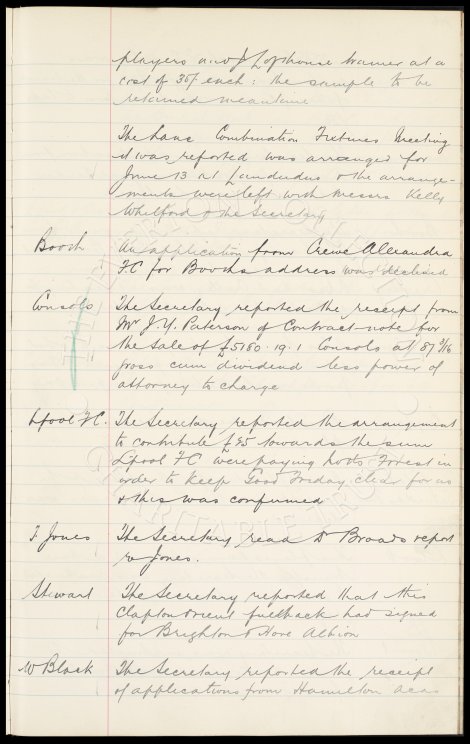 players and J Lofthouse trainer at a
cost of 30/- each: the sample to be
retained meantime
The Lanc Combination Fixtures Meeting
it was reported was arranged for
June 13 at Llandudno & the arrange-
ments were left with Messrs Kelly
Whitford & the Secretary
Booth
An application from Crewe Alexandra
FC for Booths address was declined
Consols
The Secretary reported the receipt from
Mr J.Y. Paterson of Contract-note for
the Sale of £5180.19.1 Consols at 87 3/16
gross cum dividend less power of
attorney to charge
Lpool F.C.
The Secretary reported the arrangement
to contribute £25 towards the sum
Lpool FC were paying Notts Forest in
order to keep Good Friday clear for us
& this was confirmed
T Jones
The Secretary read Dr Broads report
re Jones.
Stewart
The Secretary reported that this
Clapton Orient fullback had signed
for Brighton & Hove Albion
W Black
The Secretary reported the receipt
of applications from Hamilton Acas